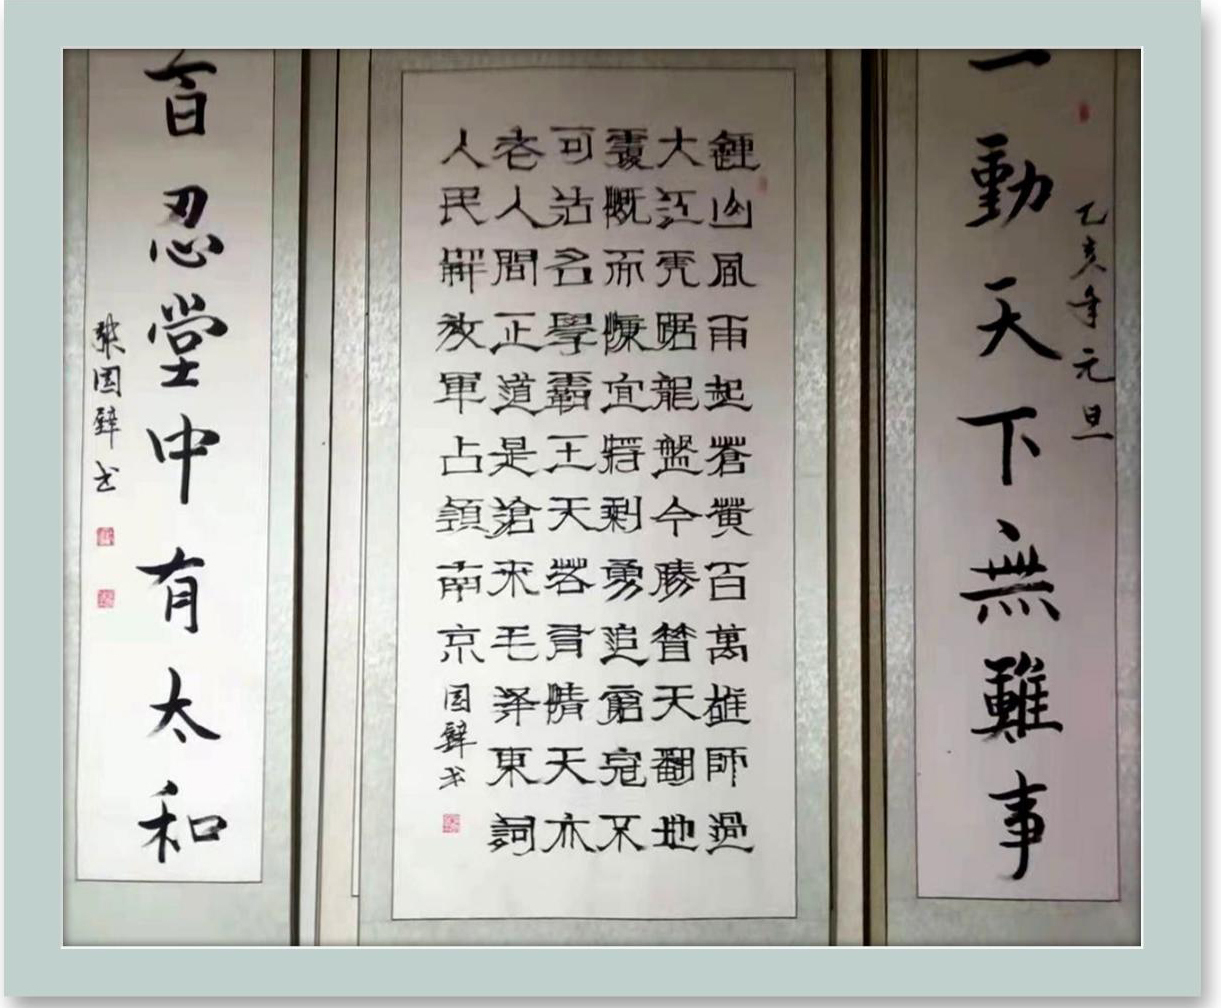 一勤天下無難事
乙亥年元旦
鍾山風雨起蒼黃百萬雄師過
大江虎踞龍盤今勝昔天翻地
覆慨而慷宜將剩勇追窮寇不
可沽名學霸王天若有情天亦
老人間正道是滄桑毛澤東詞
人民解放軍占領南京
國璧书
百忍堂中有太和
張國璧书